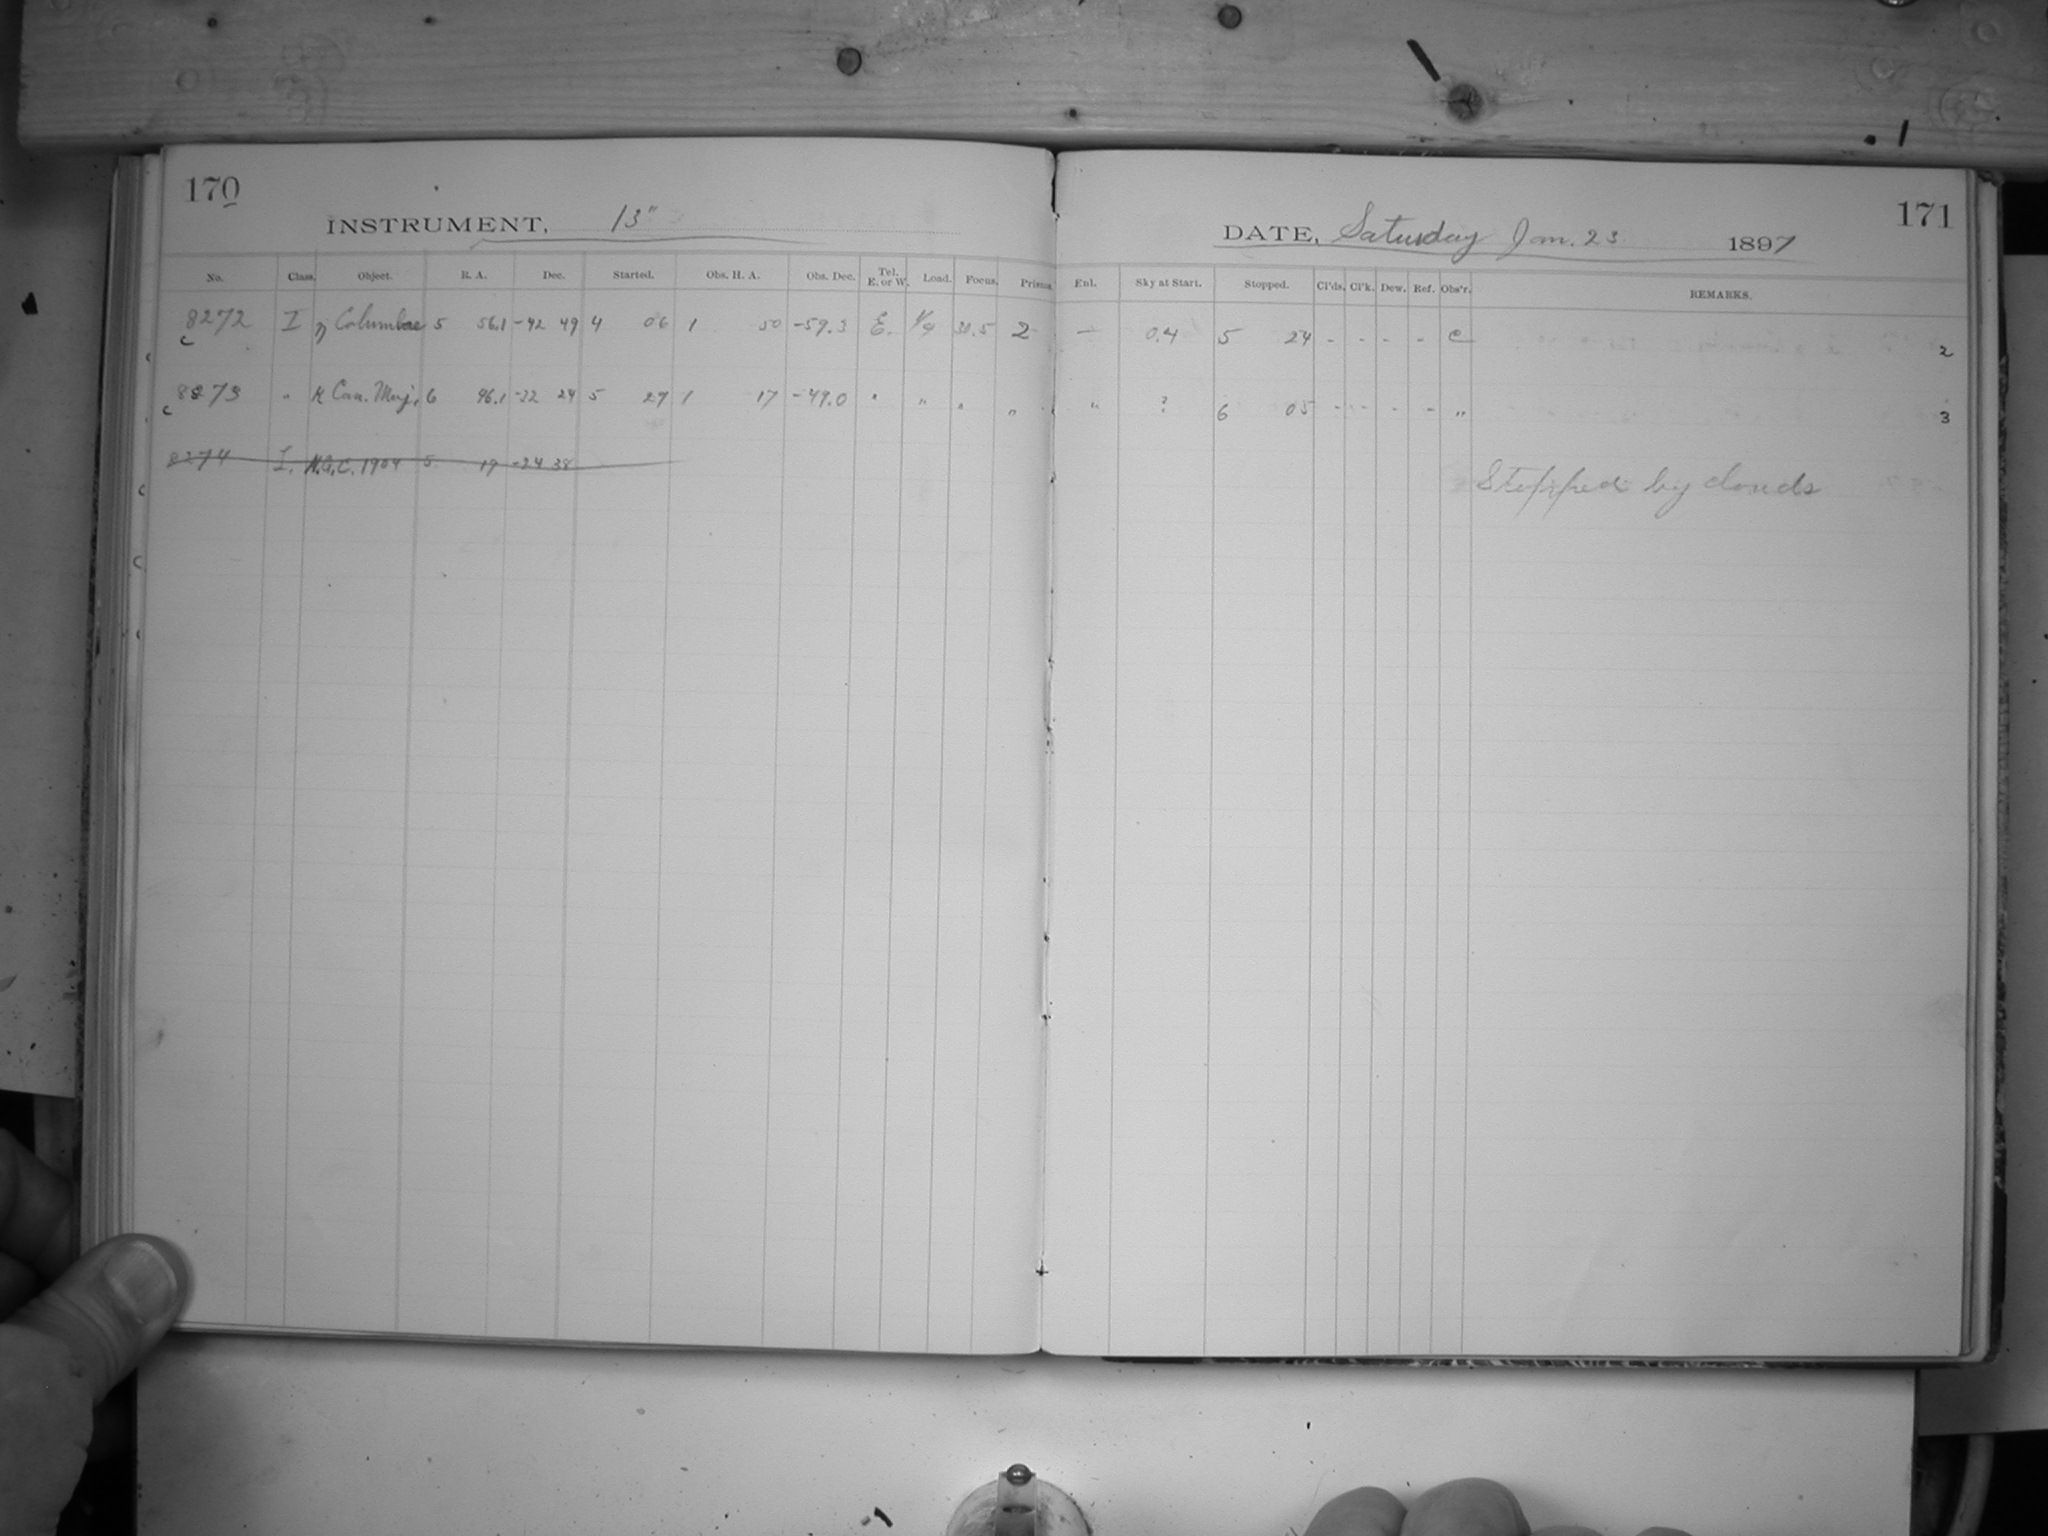 170
INSTRUMENT, 13"
No. Class. Object. R. A. Dec. Started. Obs. H. A. Obs. Dec. Tel. E. or W. Load. Focus. Prisms
8272 I η Columbae 5 56.1 -42 49 4 06 1 50 -59.3 E. 1/9 30.5 2
c
8273 " K Can. Maj. 6 46.1 -32 24 5 27 1 17 -49.0 " " " "
c
8274 I. N.G.C. 1904 5 19 -24 38
171
DATE, Saturday Jan. 23 1897
Enl. Sky at Start. Stopped. Cl'ds. Cl'k. Dew. Ref. Obs'r. REMARKS.
— 0.4 5 24 - - - - C 2
" ? 6 05 - - - - " 3
Stopped by clouds